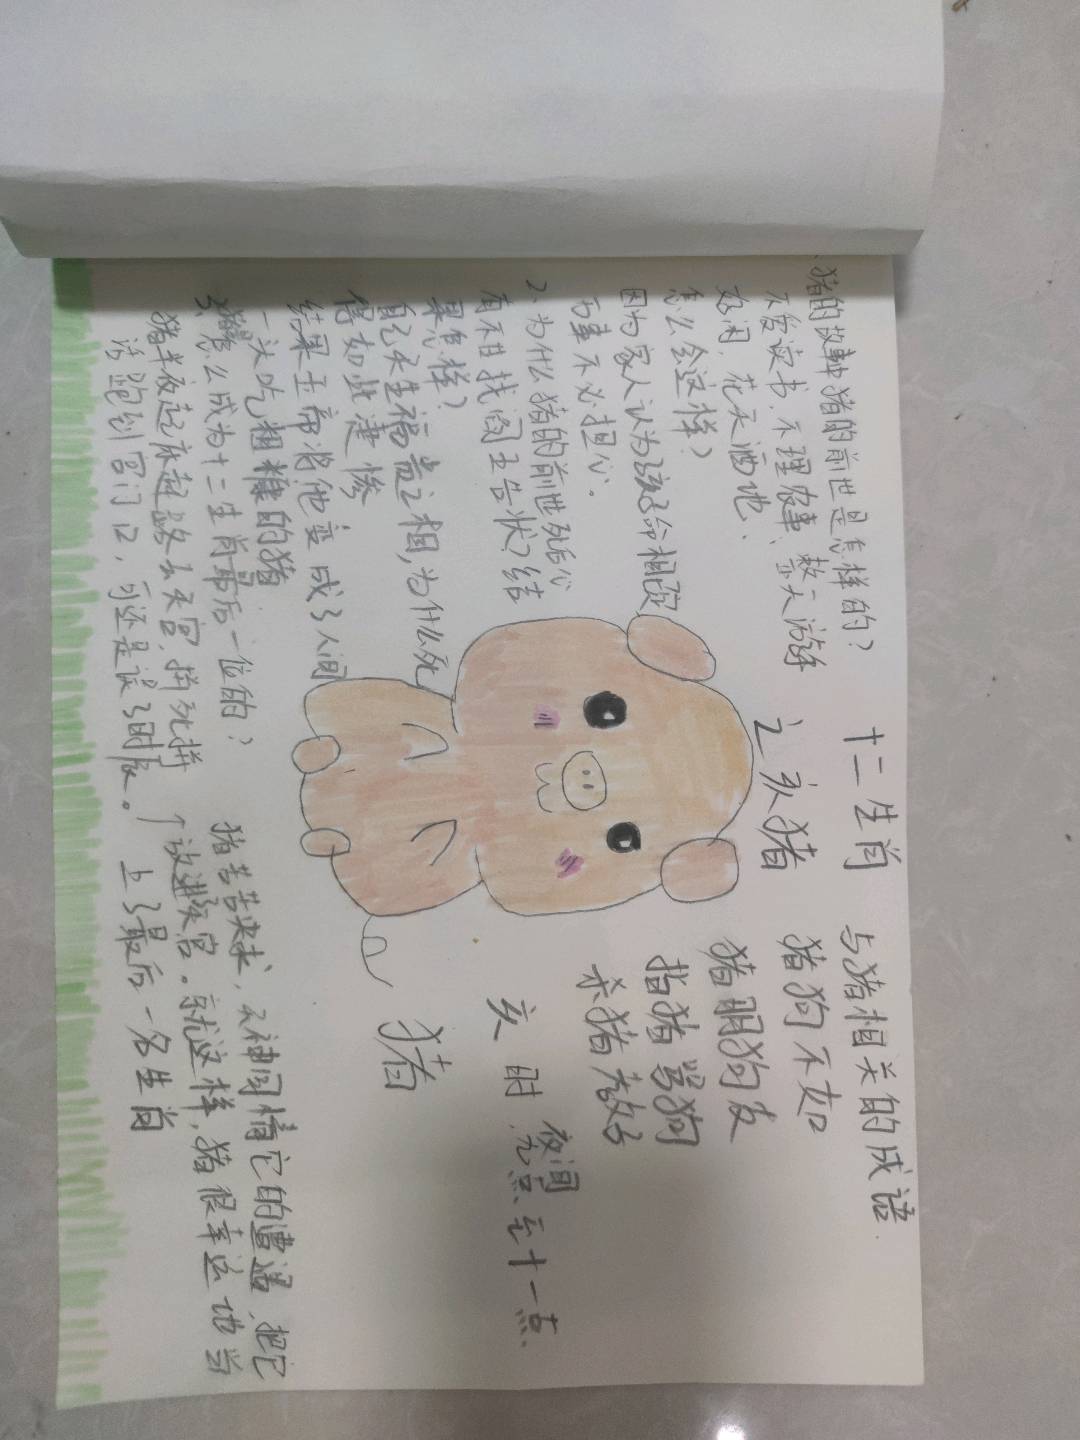 十二生肖
之亥猪
1、猪的故事猪的前世是怎样的？
不爱读书、不理农事、整天游手
好闲，花天酒地、
怎么会这样？
因为家人认为孩子命相
万事不必担心。
2、为什么猪的前世死后
有不甘找阎王告状？结
果怎样？
自己天生福贵之相，为什么死
得如此凄惨
结果玉帝将他变成了人间
一头吃粗糠的猪
3、猪怎么成为十二生肖最后一位的？
猪半夜起床赶路去天宫，拼死拼
活跑到宫门口，可还是误了时辰。
猪苦苦央求，天神同情它的遭遇、把它
放进天宫。就这样，猪很幸运地当
上了最后一名生肖
与猪相关的成语
猪狗不如
猪朋狗友
指猪骂狗
杀猪教子
亥时
夜间
九点至十一点
猪